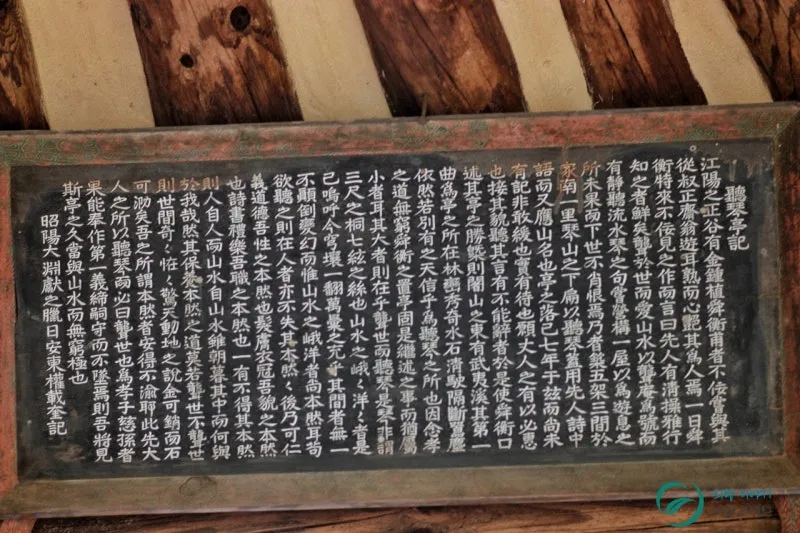 聽琴亭記
江陽之正谷有金鍾植舜衡甫者不佞嘗與其
從叔正齋翁遊耳熟而心艷其爲人焉一日舜
衡特來不佞見之作而言曰先人有淸操雅行
知之者鮮矣聾於世而愛山水以聾庵爲號而
有靜聽流水琴之句嘗營構一屋以爲遊息之
所未果而下世不肖恨焉乃者五架三間於
家南一里琴山之下扁以聽琴蓋用先人詩中
語而又應山名也亭之落已七年于玆而尚未
有記非敢緩也實有待也願丈人之有以必惠
也接其貌聽其言有不能辭者於是使舜衡口
述其亭之勝槩則闍山之東有武夷溪其第一
曲爲亭之所在林樾秀奇水石淸駛隔斷囂塵
依然若別有之天信乎爲聽琴之所也因念孝
之道無窮舜衡之置亭固是繼述之事而猶屬
小者耳其大者則在乎聾世而聽琴是琴非謂
三尺之桐七絃之絲也山水之峨〻洋〻者是
已嗚呼今穹壤一翻萬彙之乎其間者無一
不顚倒變幻而惟山水之峨洋者尚本然耳苟
欲聽之則在人者亦不失其本然〻後乃可仁
義道德吾性之本然也髮膚衣冠吾貌之本然
也詩書禮樂吾職之本然也一有不得其本然
則人自人而山水自山水雖朝暮其中而何與
於我哉然其保本然之道莫若聾世不聾世
則世間奇〻恠〻驚天動地之說金可銷而石
可泐矣吾之所謂本然者安得不渝耶此先大
人之所以聽琴而必曰聾世也爲孝子慈孫者
果能奉作第一義締嗣守而不墜焉則吾將見
斯亭之久當與山水而無窮極也
昭陽大淵獻之臘日安東權載奎記